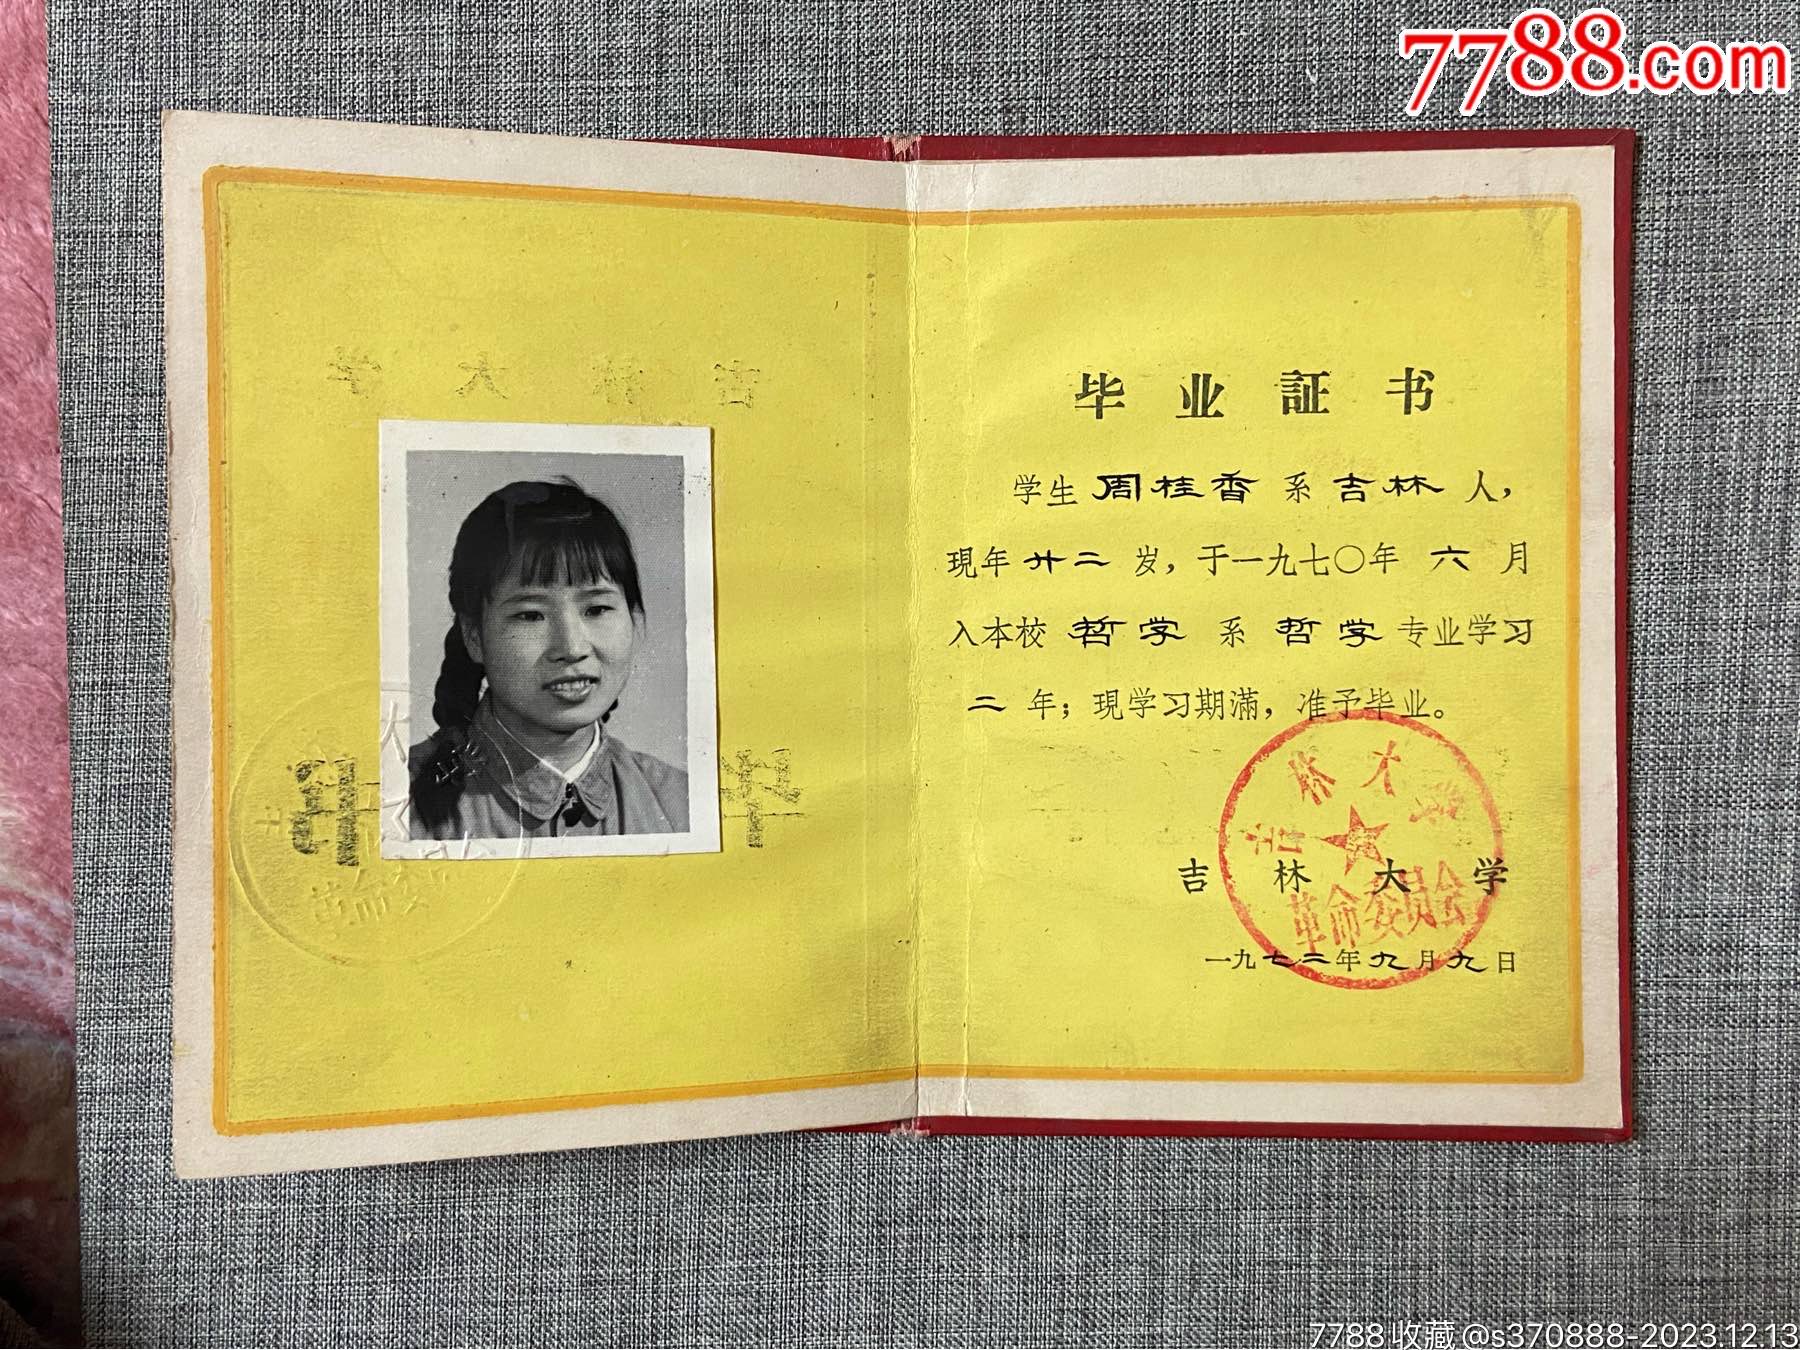 7788.com
吉林大学
毕业証书
学生周桂香系吉林人，
現年廿二岁，于一九七〇年六月
入本校哲学系哲学专业学习
二年；現学习期滿，准予毕业。
吉林大学
革命委员会
吉林大学
一九七二年九月九日
革命委员会
7788收藏@s370888-2023.12.13